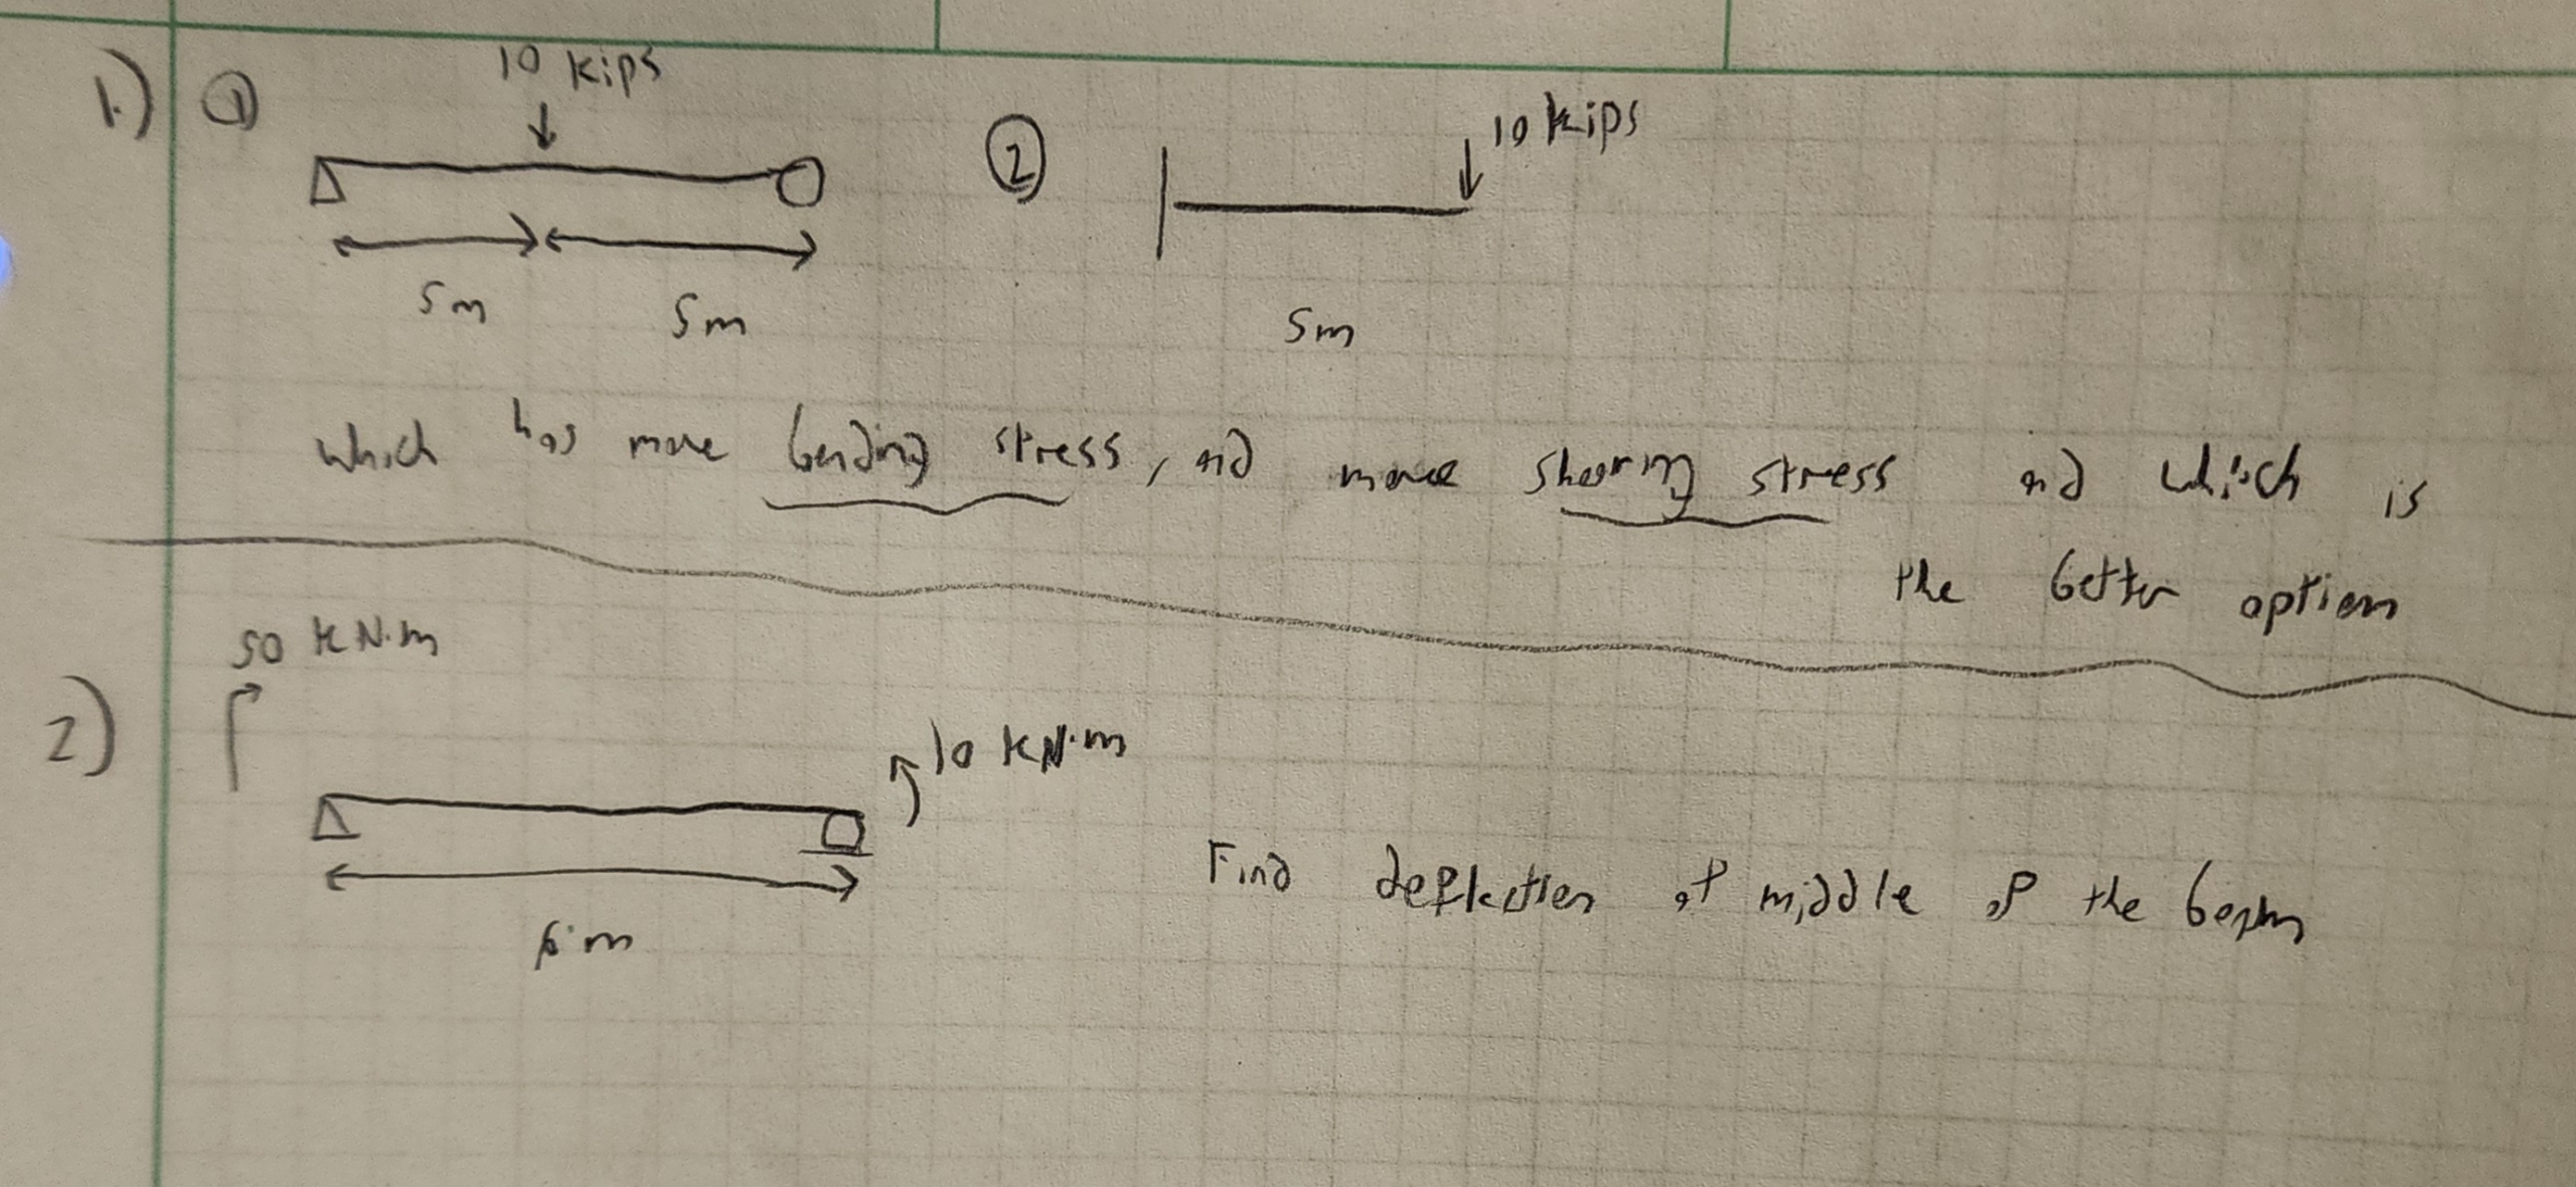 1.) ① 10 kips
② 10 kips
5m 5m 5m
which has more bending stress, and more shearing stress and which is
the better option
50 kN·m
2) 10 kN·m
6 m
Find deflection at middle of the beam